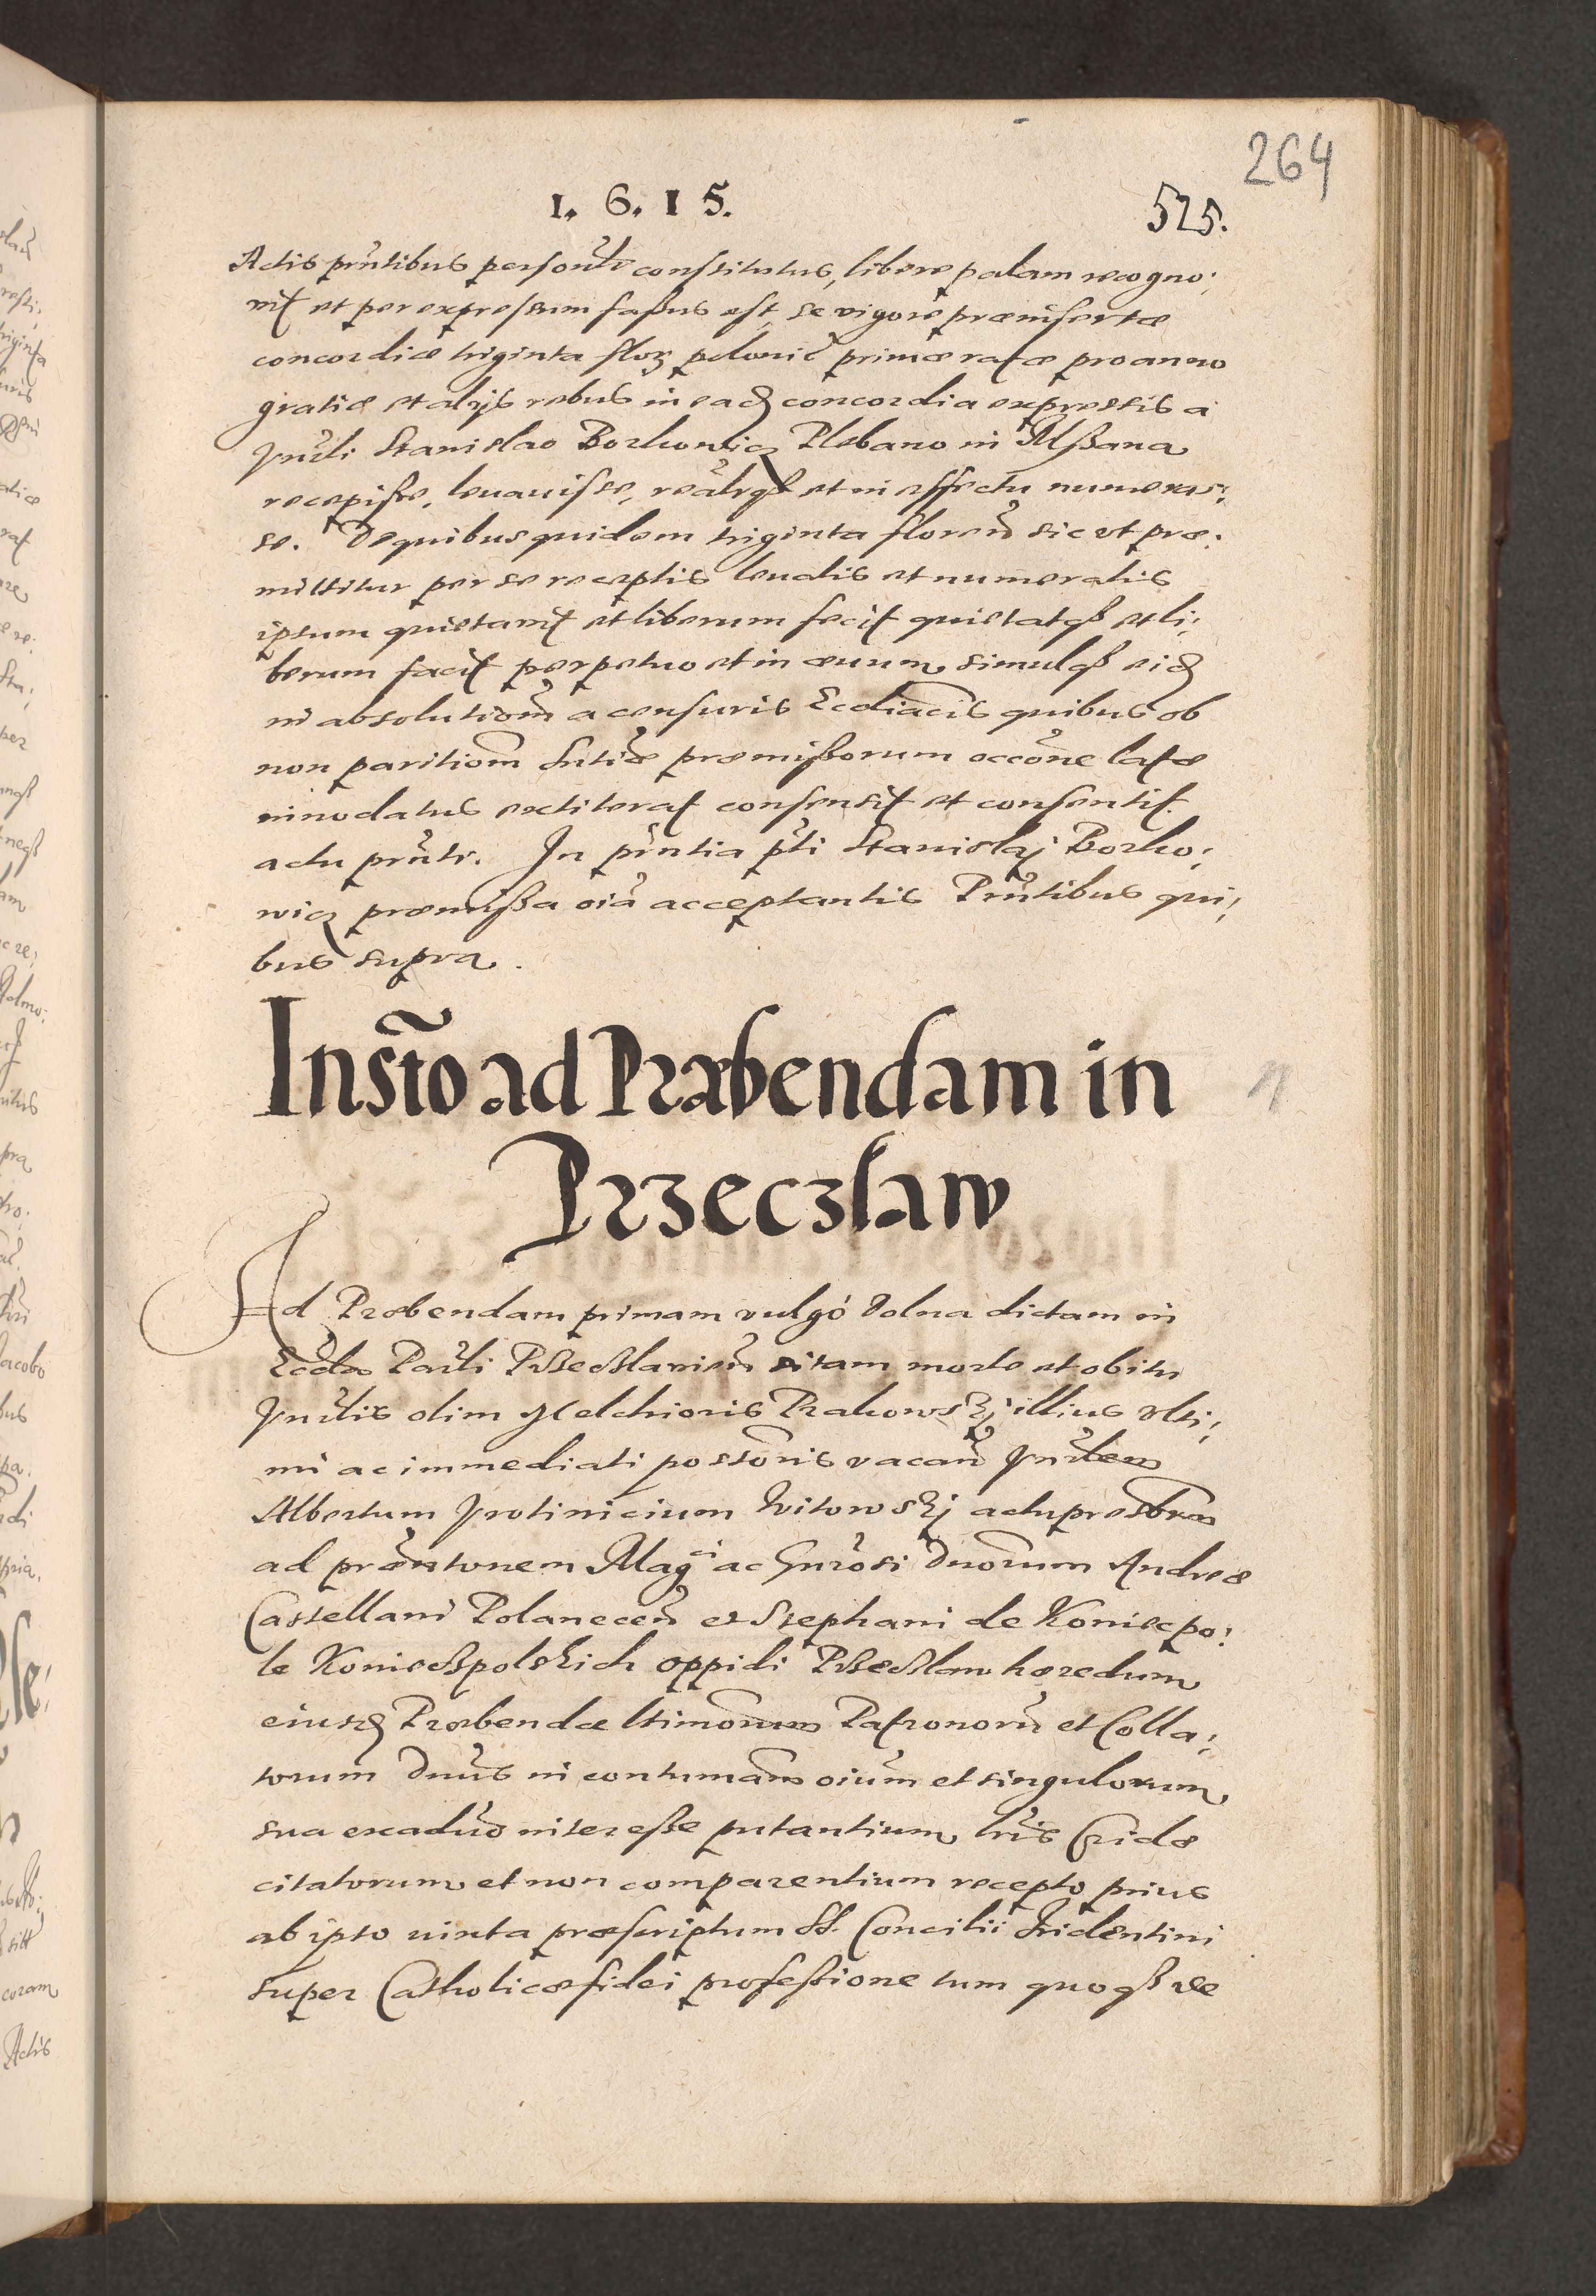 264
1. 6. 1 5.
525.
Actis prntibus personlr constitutus, libere palam recogno:
vit et per expressum fassus est, se vigore præinsertæ
concordiæ triginta flor polonic primæ ratæ pro anno
gratiæ et alijs rebus in ead concordia expressis a
Vnrli Stanislao Borkowicz Plebano in Mssana
recepisse, leuauisse, realrqz et in effectu numeras:
se. De quibus quidem triginta floren sic ut præ:
mittitur per se receptis leuatis et numeratis
ipsum quietavit et liberum fecit quietatqz et li:
berum facit perpetuo et in æuum, simulqz eid
in absolutionem a censuris Ecclîacis quibus ob
non paritiom sntiæ præmissorum occone latæ
innodatus extiterat consensit et consentit
actu prnti. In prntia pti Stanislaj Borko:
wicz præmissa oia acceptantis Prntibus qui:
bus supra.
Insto ad Præbendam in
Przeczlaw
Ad Præbendam primam vulgo Dolna dictam in
Eccla Parli Psseczlavien sitam morte et obitu
Vnrlis olim Melchioris Krakowskj illius ulti:
mi ac immediati possoris vacan Vnrlem
Albertum Protinicium Witowskj actu presbrum
ad præntonem Magci ac Gnrosi Dnorum Andreæ
Castellani Polanecen et Stephani de Koniecpo:
le Koniecspolskich oppidi Psseczlaw hæredum
eiusd Præbendæ ltimorum Patronoru et Colla:
torum Dnus in contumam oium et singulorum
sua exaduo interesse putantium lris Cridæ
citatorum et non comparentium recepto prius
ab ipso iuxta præscriptum SS. Concilii Tridentini
super Catholicæ fidei professione tum quoqz de